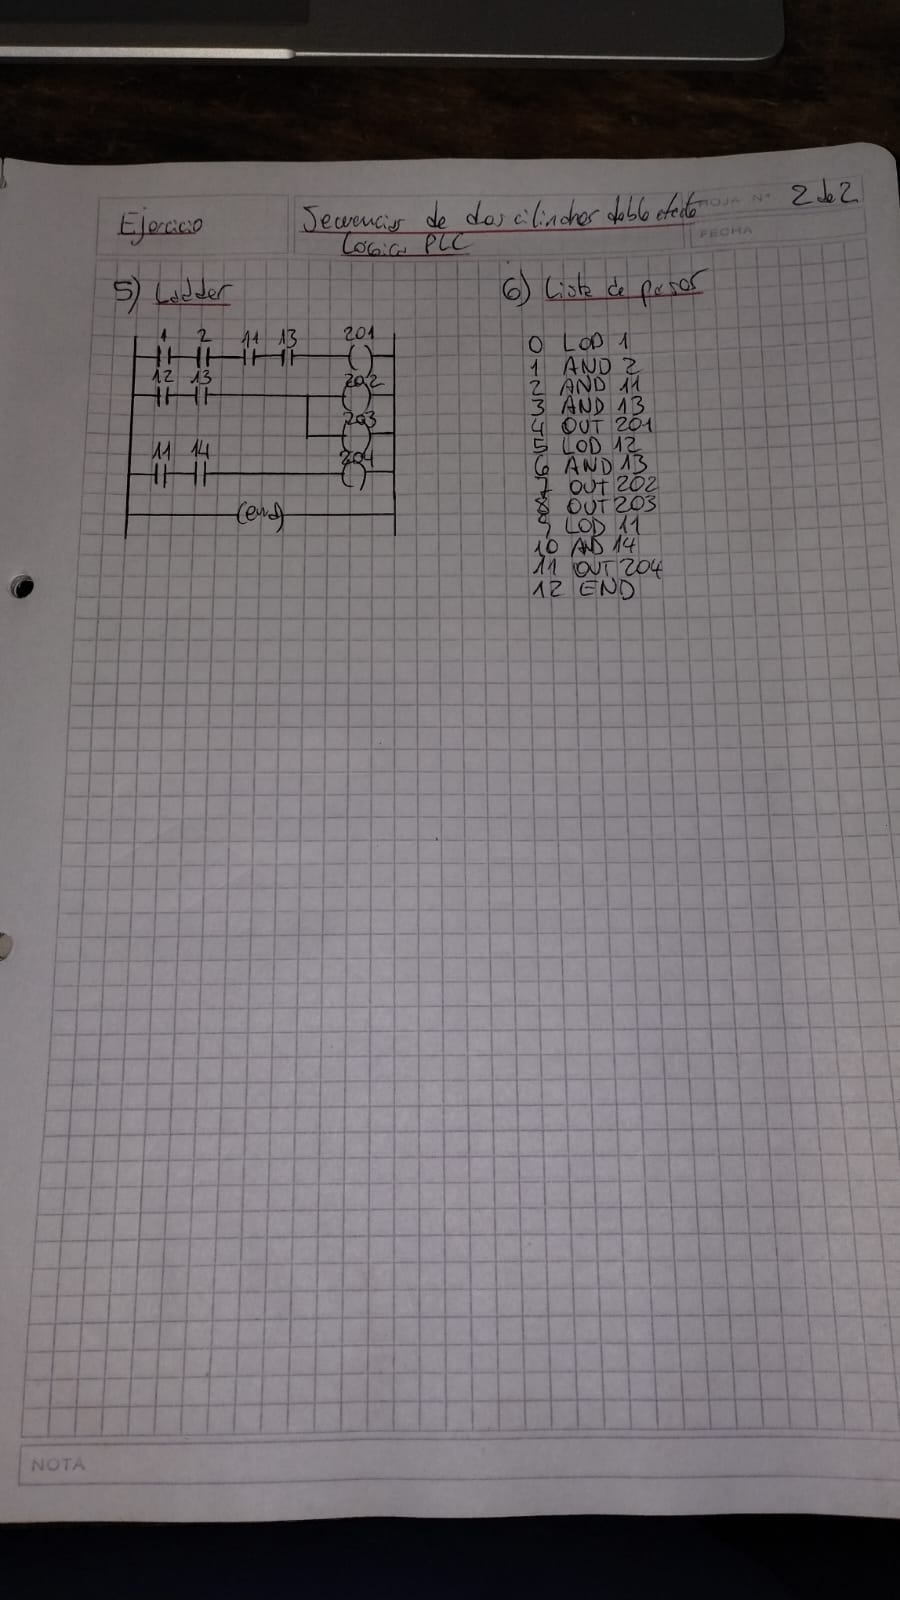 Ejercicio
Secuencias de dos cilindros doble efecto
Logica PLC
HOJA N° 2 de 2
FECHA
5) Ladder
1 2 11 13 201
12 13 202
203
11 14 204
(end)
6) Lista de pasos
0 LOD 1
1 AND 2
2 AND 11
3 AND 13
4 OUT 201
5 LOD 12
6 AND 13
7 OUT 202
8 OUT 203
9 LOD 11
10 AND 14
11 OUT 204
12 END
NOTA